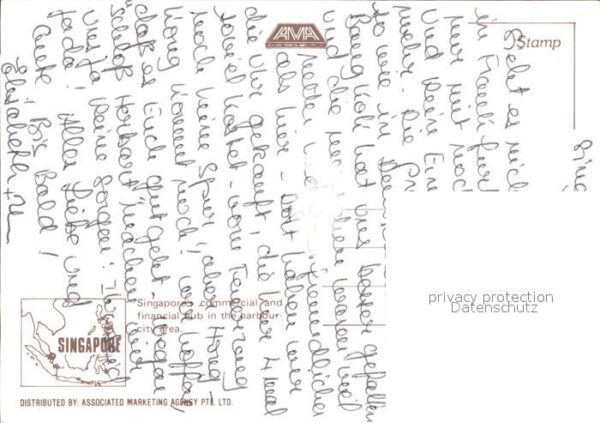 AMA
Stamp
Sing
Geht es nich
in Frankfur
nur mit noc
und kein Ein
mehr. Die
so wie in
Bangkok hat uns besser gefallen
und die waren viel
netter freundlicher
als hier - dort haben wir
die Uhr gekauft, die hier 4 mal
soviel kostet - vom Feuerzeug
noch keine Spur, aber Hong
kong kommt noch! wir hoffen,
daß es Euch gut geht, wegen
"Schloß machen wir
uns ja keine Sorgen! Ihr seid
ja da! Alles Liebe und
Gute! Bis Bald!
Elisabeth +
Singapore's commercial and
financial hub in the harbour-
city area.
SINGAPORE
DISTRIBUTED BY: ASSOCIATED MARKETING AGENCY PTE. LTD.
privacy protection
Datenschutz